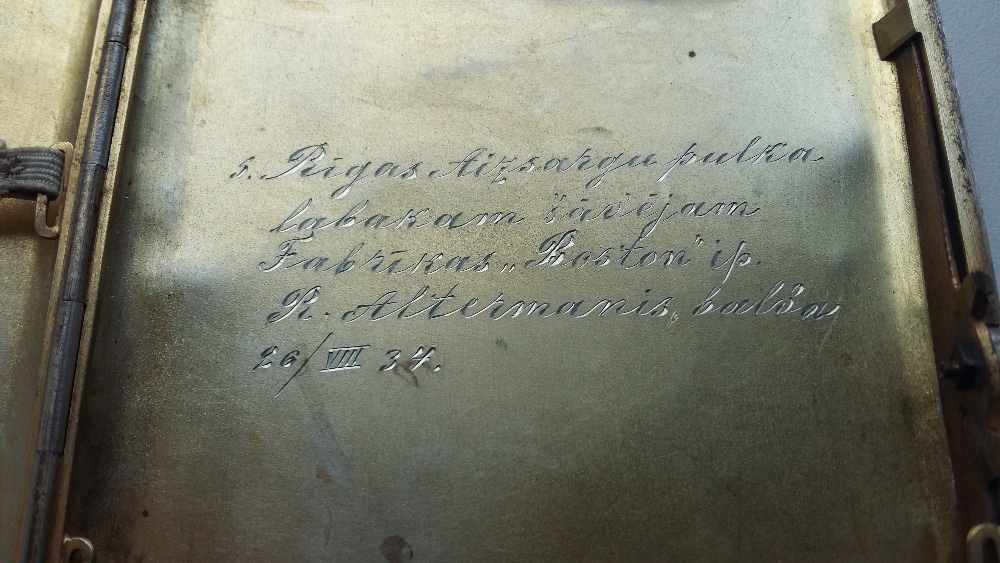 5. Rīgas Aizsargu pulka
labakam šāvējam
Fabrīkas „Boston" ip.
R. Altermanis, balva
26/VIII 34.